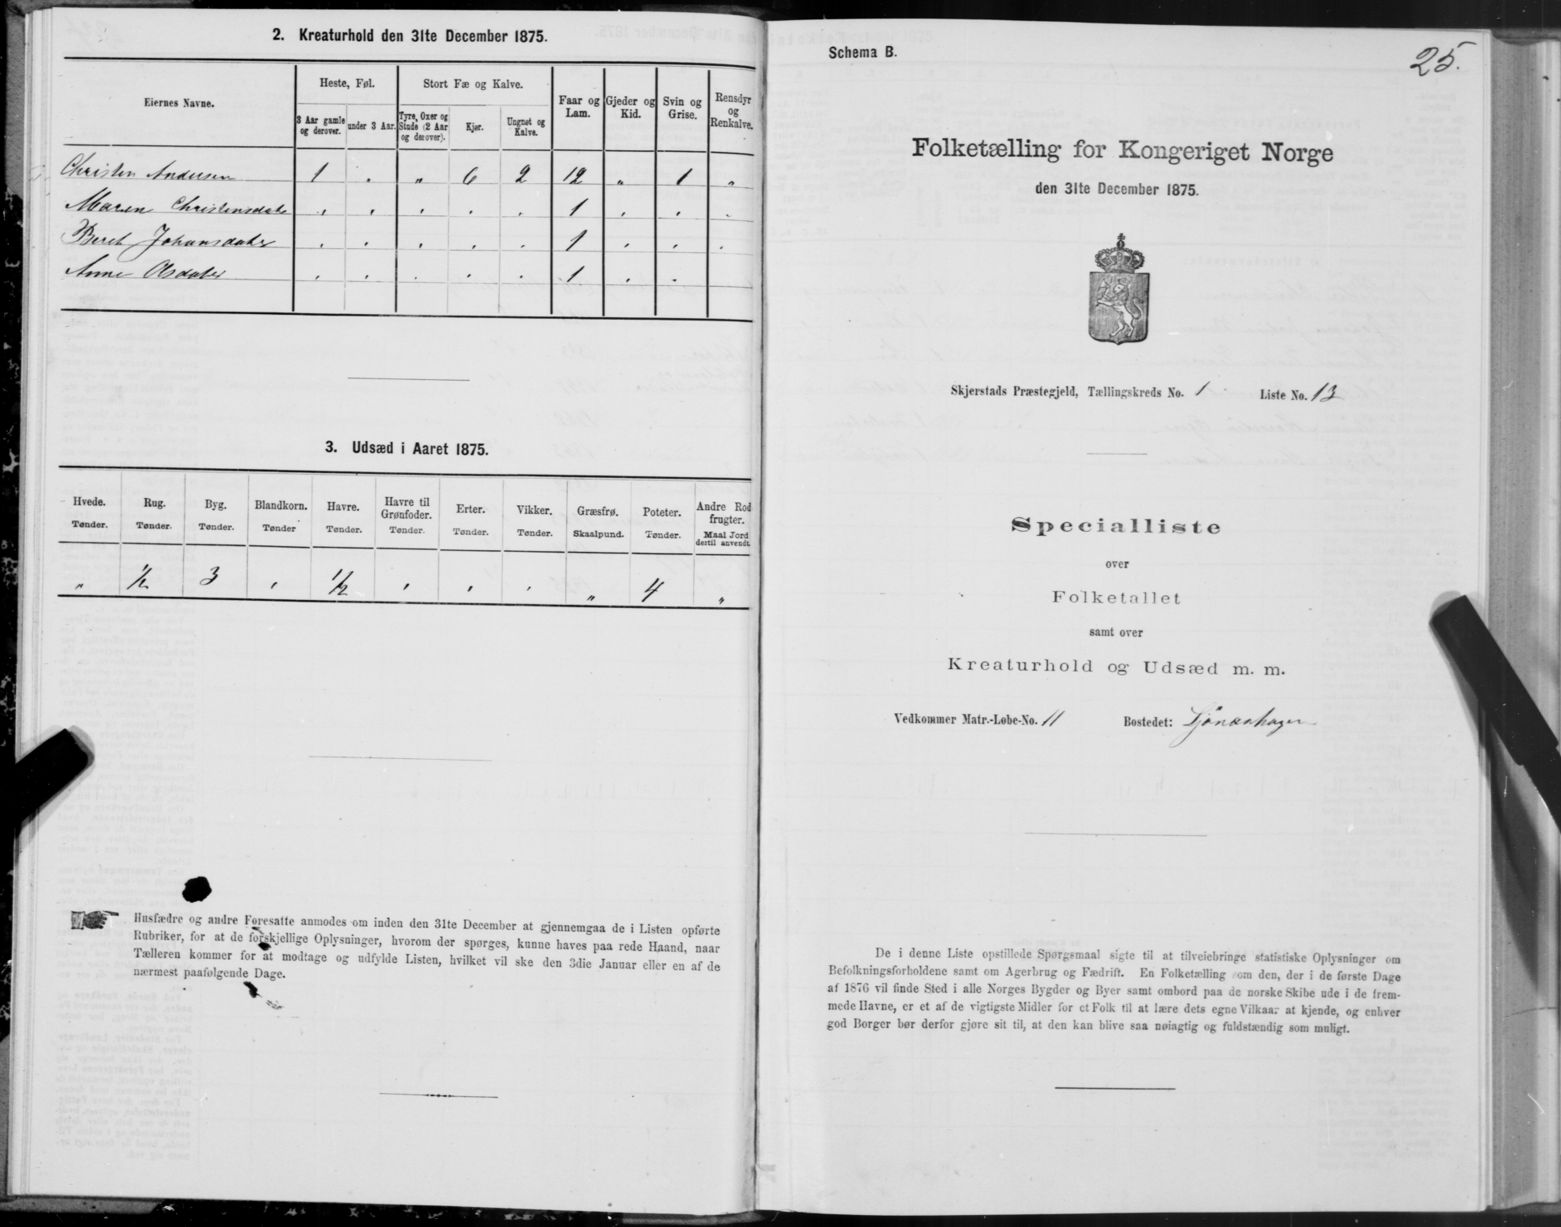 2. Kreaturhold den 31te December 1875.
Eiernes Navne.
Heste, Føl.
Stort Fæ og Kalve.
3 Aar gamle og derover.
under 3 Aar.
Tyre, Oxer og Stude (2 Aar og derover).
Kjør.
Ungnøt og Kalve.
Faar og Lam.
Gjeder og Kid.
Svin og Grise.
Rensdyr og Renkalve.
Christen Andersen 1 „ „ 6 2 12 „ 1 „
Maren Christensdatr 1
Beret Johansdatr 1
Anne Olsdatr 1
3. Udsæd i Aaret 1875.
Hvede. Rug. Byg. Blandkorn. Havre. Havre til Grønfoder. Erter. Vikker. Græsfrø. Poteter. Andre Rodfrugter.
Tønder. Tønder. Tønder. Tønder Tønder. Tønder. Tønder. Tønder. Skaalpund. Tønder. Maal Jord dertil anvendt.
„ ½ 3 „ ½ „ „ „ „ 4 „
Husfædre og andre Foresatte anmodes om inden den 31te December at gjennemgaa de i Listen opførte
Rubriker, for at de forskjellige Oplysninger, hvorom der spørges, kunne haves paa rede Haand, naar
Tælleren kommer for at modtage og udfylde Listen, hvilket vil ske den 3die Januar eller en af de
nærmest paafølgende Dage.
Schema B.
25.
Folketælling for Kongeriget Norge
den 31te December 1875.
Skjerstads Præstegjeld, Tællingskreds No. 1 Liste No. 13
Specialliste
over
Folketallet
samt over
Kreaturhold og Udsæd m. m.
Vedkommer Matr.-Løbe-No. 11 Bostedet:
De i denne Liste opstillede Spørgsmaal sigte til at tilveiebringe statistiske Oplysninger om
Befolkningsforholdene samt om Agerbrug og Fædrift. En Folketælling som den, der i de første Dage
af 1876 vil finde Sted i alle Norges Bygder og Byer samt ombord paa de norske Skibe ude i de frem-
mede Havne, er et af de vigtigste Midler for et Folk til at lære dets egne Vilkaar at kjende, og enhver
god Borger bør derfor gjøre sit til, at den kan blive saa nøiagtig og fuldstændig som muligt.